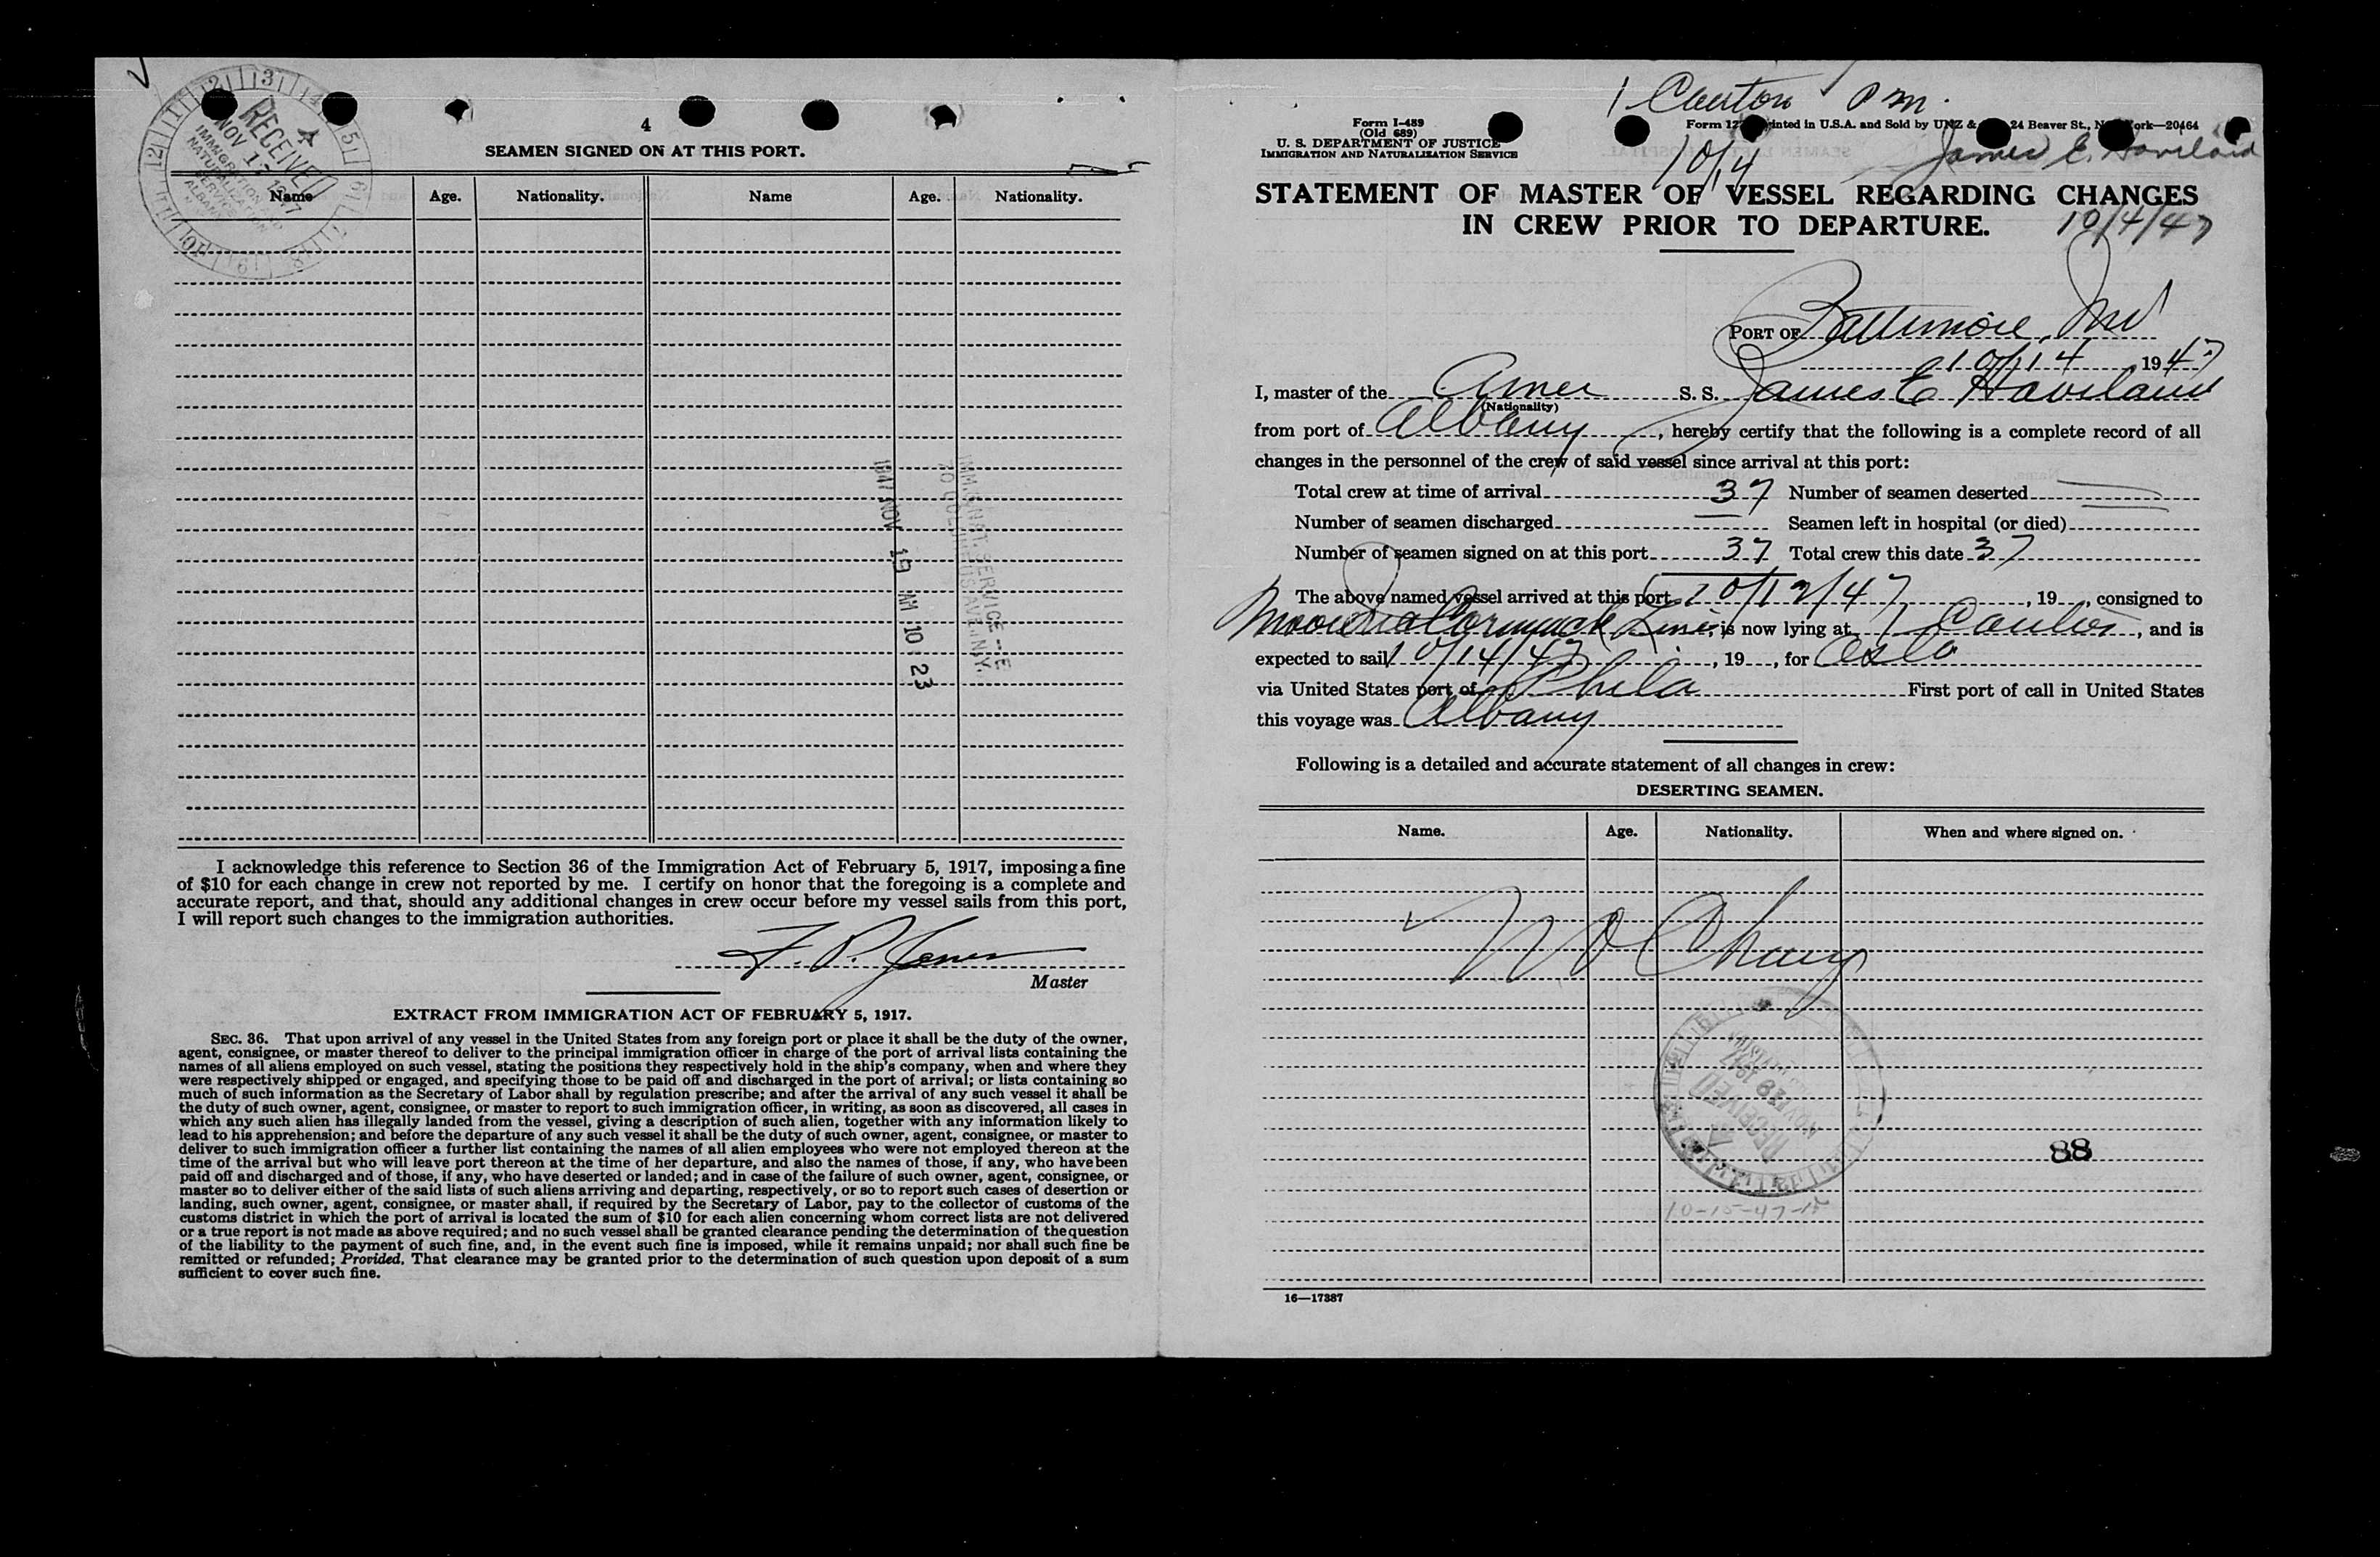 4
SEAMEN SIGNED ON AT THIS PORT.
RECEIVED
NOV 17 1947
IMMIGRATION AND
NATURALIZATION
SERVICE
ALBANY
Name Age. Nationality. Name Age. Nationality.
1947 NOV 19 AM 10 23
I acknowledge this reference to Section 36 of the Immigration Act of February 5, 1917, imposing a fine
of $10 for each change in crew not reported by me. I certify on honor that the foregoing is a complete and
accurate report, and that, should any additional changes in crew occur before my vessel sails from this port,
I will report such changes to the immigration authorities.
F. P. Jones
Master
EXTRACT FROM IMMIGRATION ACT OF FEBRUARY 5, 1917.
SEC. 36. That upon arrival of any vessel in the United States from any foreign port or place it shall be the duty of the owner,
agent, consignee, or master thereof to deliver to the principal immigration officer in charge of the port of arrival lists containing the
names of all aliens employed on such vessel, stating the positions they respectively hold in the ship's company, when and where they
were respectively shipped or engaged, and specifying those to be paid off and discharged in the port of arrival; or lists containing so
much of such information as the Secretary of Labor shall by regulation prescribe; and after the arrival of any such vessel it shall be
the duty of such owner, agent, consignee, or master to report to such immigration officer, in writing, as soon as discovered, all cases in
which any such alien has illegally landed from the vessel, giving a description of such alien, together with any information likely to
lead to his apprehension; and before the departure of any such vessel it shall be the duty of such owner, agent, consignee, or master to
deliver to such immigration officer a further list containing the names of all alien employees who were not employed thereon at the
time of the arrival but who will leave port thereon at the time of her departure, and also the names of those, if any, who have been
paid off and discharged and of those, if any, who have deserted or landed; and in case of the failure of such owner, agent, consignee, or
master so to deliver either of the said lists of such aliens arriving and departing, respectively, or so to report such cases of desertion or
landing, such owner, agent, consignee, or master shall, if required by the Secretary of Labor, pay to the collector of customs of the
customs district in which the port of arrival is located the sum of $10 for each alien concerning whom correct lists are not delivered
or a true report is not made as above required; and no such vessel shall be granted clearance pending the determination of the question
of the liability to the payment of such fine, and, in the event such fine is imposed, while it remains unpaid; nor shall such fine be
remitted or refunded; Provided, That clearance may be granted prior to the determination of such question upon deposit of a sum
sufficient to cover such fine.
1 Canton PM.
Form I-489
(Old 689)
U. S. DEPARTMENT OF JUSTICE
IMMIGRATION AND NATURALIZATION SERVICE
Printed in U.S.A. and Sold by UNZ & 24 Beaver St., 20464
10/14
James E. Haviland
STATEMENT OF MASTER OF VESSEL REGARDING CHANGES
IN CREW PRIOR TO DEPARTURE.
10/4/47
PORT OF Baltimore, Md
10/14 1947
I, master of the Amer S. S. James E Haviland
(Nationality)
from port of Albany, hereby certify that the following is a complete record of all
changes in the personnel of the crew of said vessel since arrival at this port:
Total crew at time of arrival 37 Number of seamen deserted —
Number of seamen discharged — Seamen left in hospital (or died) —
Number of seamen signed on at this port 37 Total crew this date 37
The above named vessel arrived at this port 10/12/47, 19 , consigned to
Line, is now lying at 1 Canton, and is
expected to sail 10/14/47, 19 , for Oslo
via United States port of Phila First port of call in United States
this voyage was Albany
Following is a detailed and accurate statement of all changes in crew:
DESERTING SEAMEN.
Name. Age. Nationality. When and where signed on.
No Chang
RECEIVED
88
10-15-47-15
16—17387